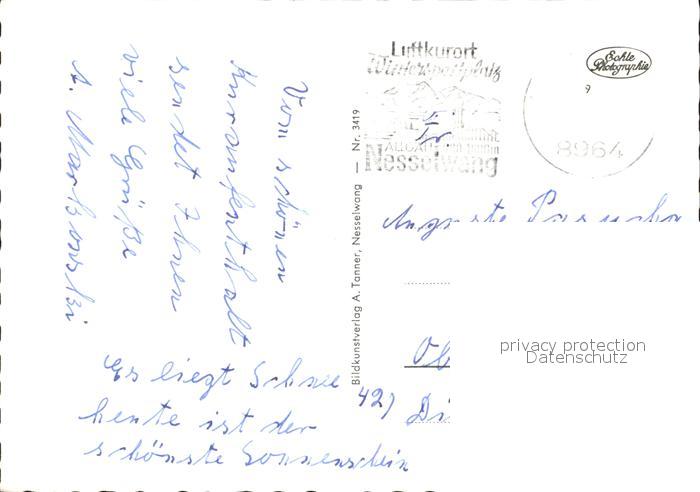 Vom schönen
Kuraufenthalt
sendet Ihnen
viele Grüße
A. Markowski
Es liegt Schnee
heute ist der
schönste Sonnenschein
Bildkunstverlag A. Tanner, Nesselwang — Nr. 3419
Luftkurort
Wintersportplatz
ALLGÄU
Nesselwang
Echte
Photographie
9
8964
Ob
427 Di
privacy protection
Datenschutz